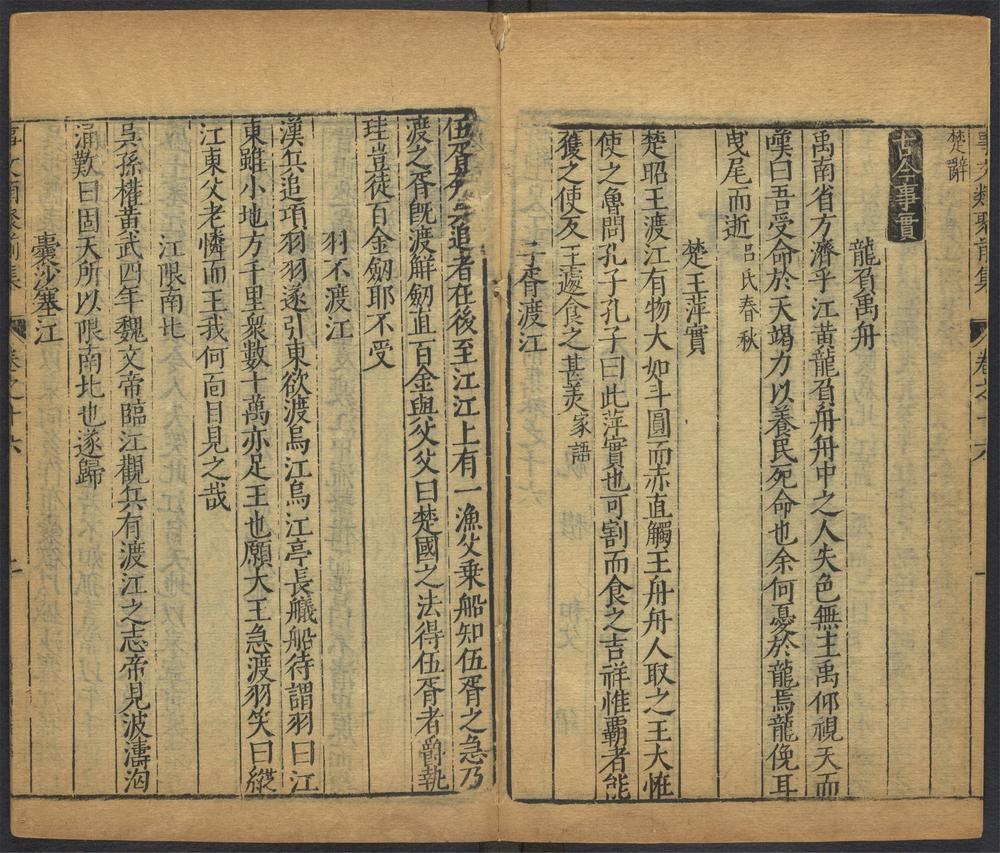 事文類聚前集 卷之十六
楚辭
古今事實
龍負禹舟
禹南省方濟乎江黃龍負舟舟中之人失色無主禹仰視天而
嘆曰吾受命於天竭力以養民死命也余何憂於龍焉龍俛耳
曳尾而逝呂氏春秋
楚王萍實
楚昭王渡江有物大如斗圓而赤直觸王舟舟人取之王大恠
使之魯問孔子孔子曰此萍實也可割而食之吉祥惟霸者能
獲之使反王遂食之甚美家語
子胥渡江
伍胥奔吳追者在後至江江上有一漁父乗船知伍胥之急乃
渡之胥旣渡解劒直百金與父父曰楚國之法得伍胥者爵執
珪豈徒百金劒耶不受
羽不渡江
漢兵追項羽羽遂引東欲渡烏江烏江亭長艤船待謂羽曰江
東雖小地方千里衆數十萬亦足王也願大王急渡羽笑曰縱
江東父老憐而王我何面目見之哉
江限南北
吳孫權黃武四年魏文帝臨江觀兵有渡江之志帝見波濤洶
涌歎曰固天所以限南北也遂歸
囊沙塞江
事文類聚前集 卷之十六 二